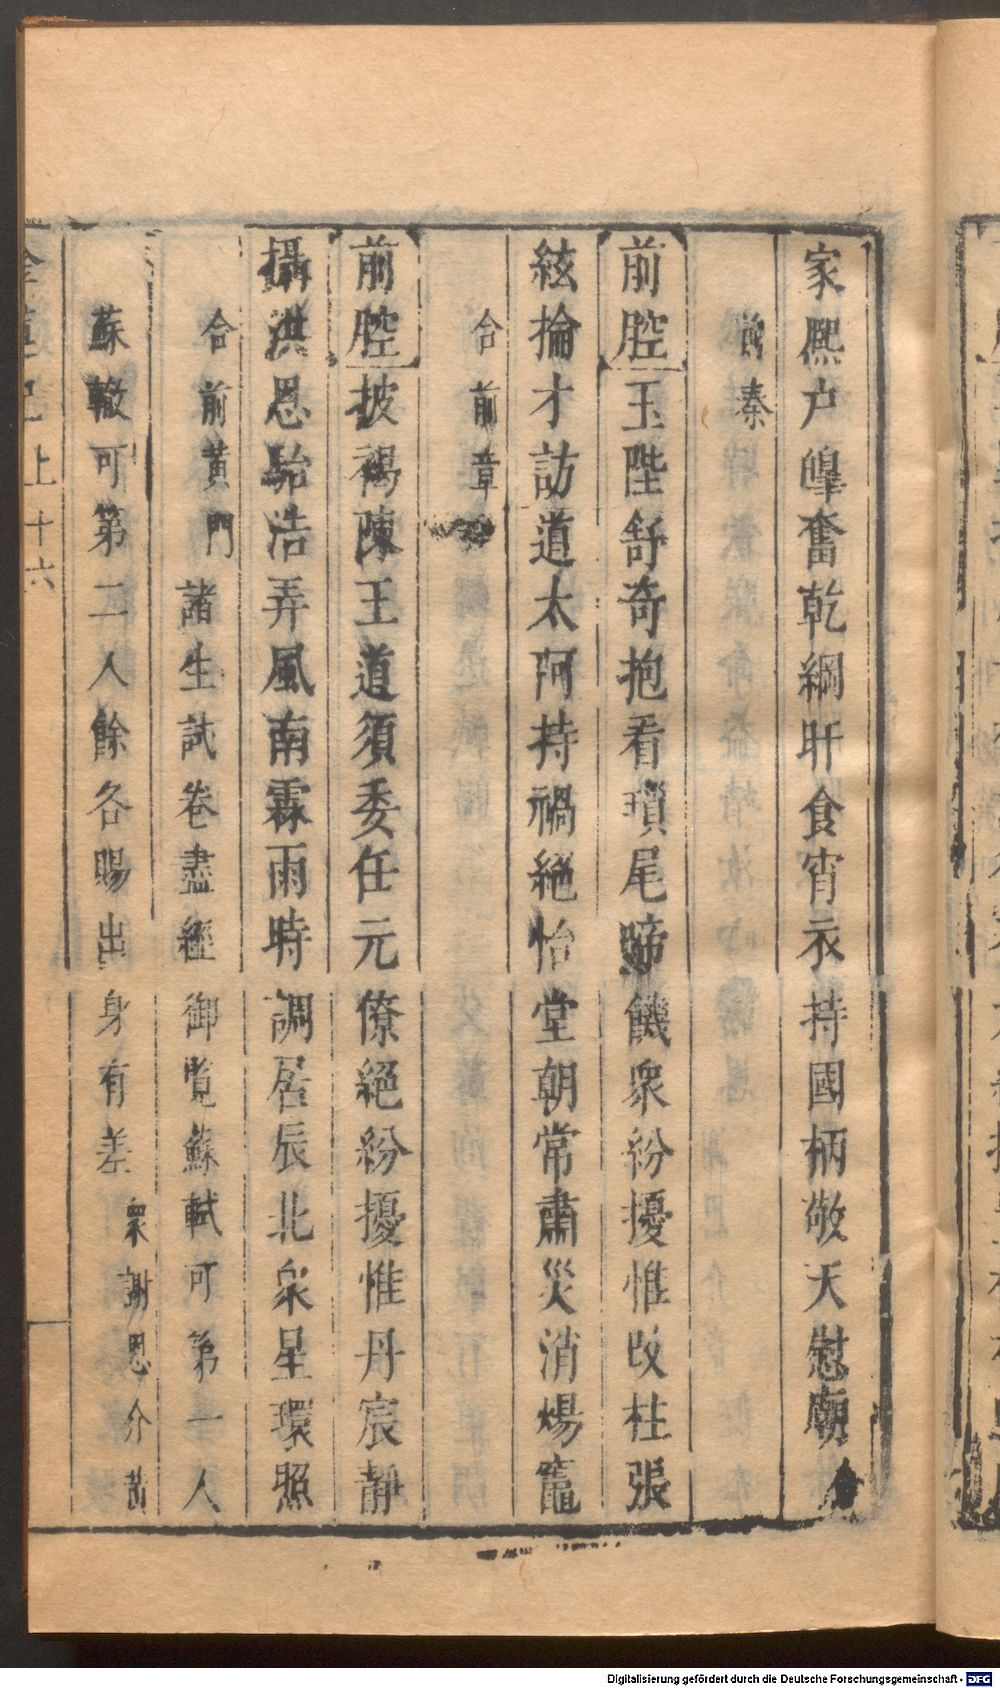 家熈户皥奮乾綱旰食宵衣持國柄敬天慰廟
前秦
前腔玉陛舒奇抱看瑣尾啼饑衆紛擾惟改柱張
絃掄才訪道太阿持禍絕怡堂朝常肅災消煬竈
合前章
前腔披裼陳王道須委任元僚絕紛擾惟丹宸靜
攝洪恩駘浩弄風南霖雨時調居辰北衆星環照
合前黃門諸生試卷盡經御覧蘇軾可第一人
蘇轍可第二人餘各賜出身有差衆謝恩介黃
上十六
Digitalisierung gefördert durch die Deutsche Forschungsgemeinschaft - DFG